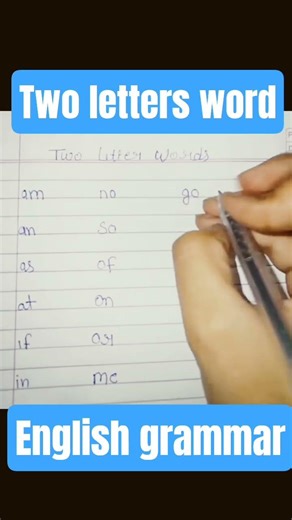 Two letters word
Two Litter Words
am no go
an so
as of
at on
if or
in me
English grammar